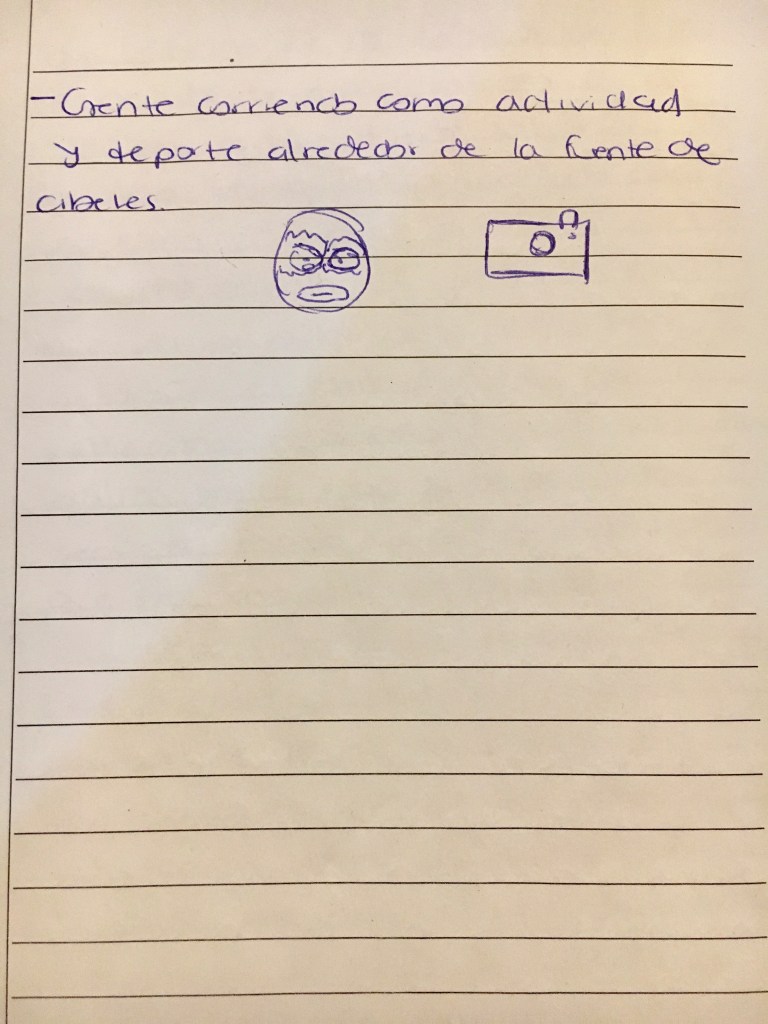 - Gente corriendo como actividad
y deporte alrededor de la fuente de
cibeles.